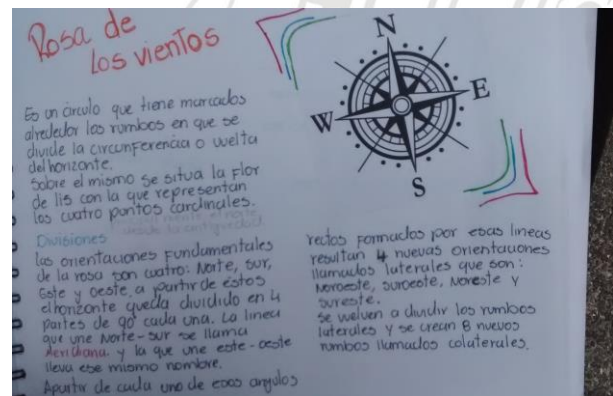 Rosa de
los vientos
Es un circulo que tiene marcados
alrededor los rumbos en que se
divide la circunferencia o vuelta
del horizonte.
Sobre el mismo se situa la Flor
de lis con la que representan
los cuatro puntos cardinales.
Divisiones
las orientaciones fundamentales
de la rosa son cuatro: Norte, sur,
Este y oeste, a partir de éstos
el horizonte queda dividido en 4
partes de 90° cada una. La linea
que une Norte-sur se llama
Meridiana y la que une este-oeste
lleva ese mismo nombre.
Apartir de cada uno de esos angulos
N
E
W
S
rectos formados por esas lineas
resultan 4 nuevas orientaciones
llamados laterales que son:
Noroeste, suroeste, Noreste y
sureste.
se vuelven a dividir los rumbos
laterales y se crean 8 nuevos
rumbos llamados colaterales.